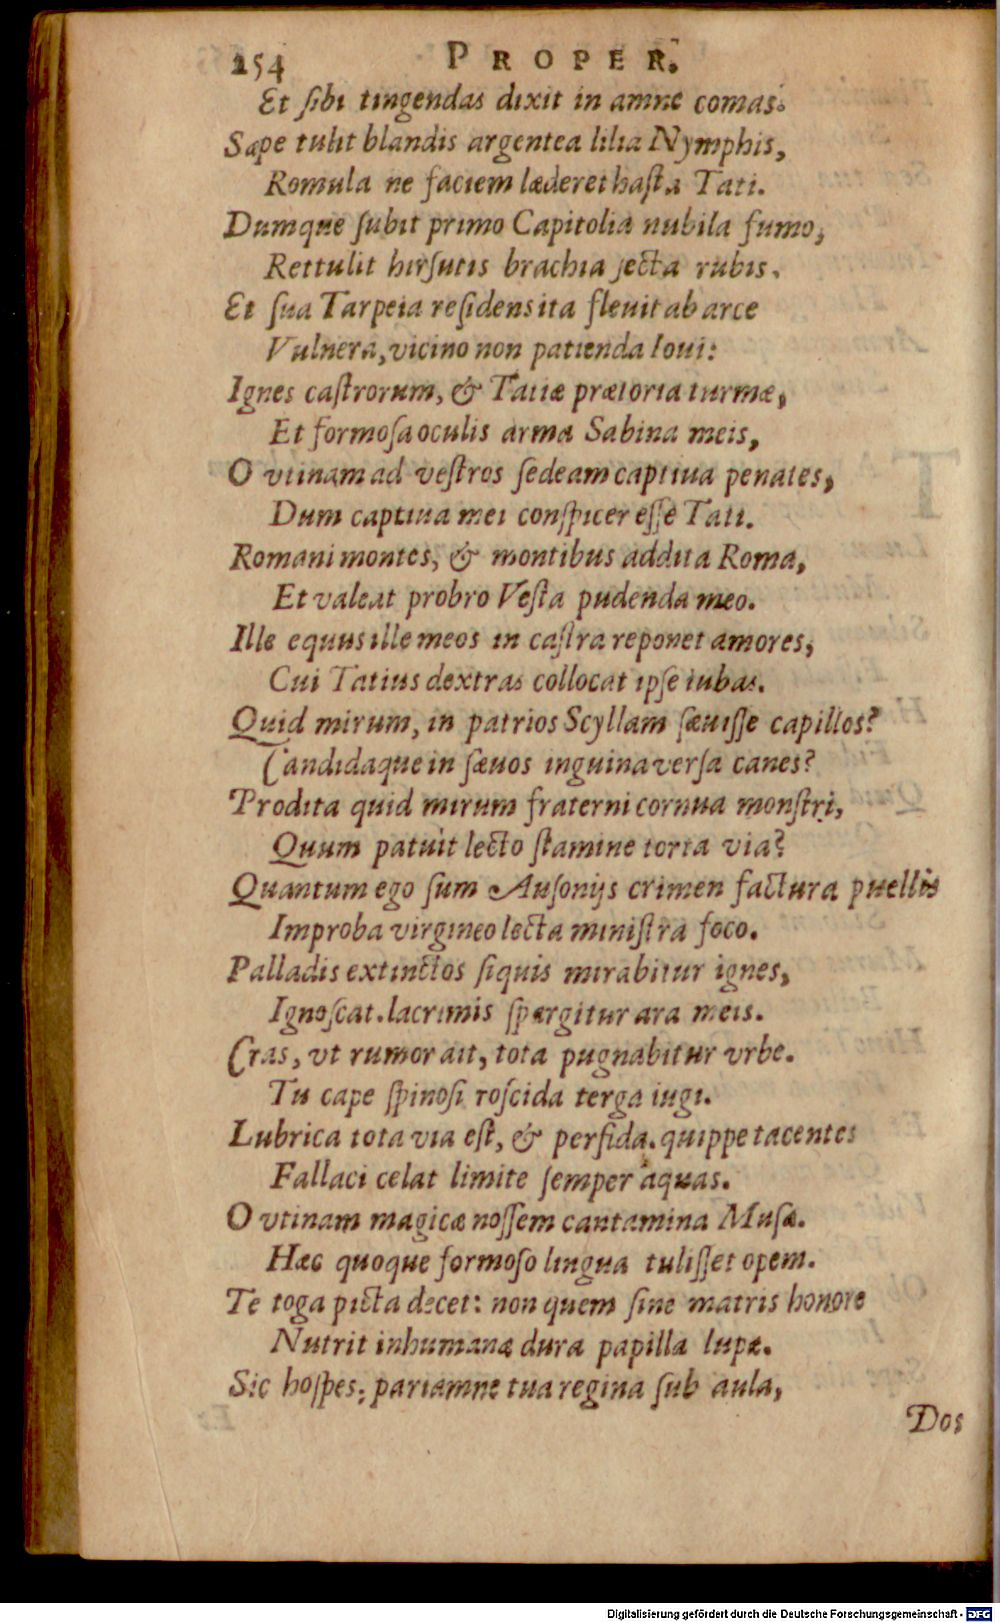 254 PROPER.
Et ſibi tingendas dixit in amne comas.
Sæpe tulit blandis argentea lilia Nymphis,
Romula ne faciem læderet haſta Tati.
Dumque ſubit primo Capitolia nubila fumo,
Rettulit hirſutis brachia ſecta rubis.
Et ſua Tarpeia reſidens ita fleuit ab arce
Vulnera, vicino non patienda Ioui:
Ignes caſtrorum, & Tatiæ prætoria turmæ,
Et formoſa oculis arma Sabina meis,
O vtinam ad veſtros ſedeam captiua penates,
Dum captiua mei conſpicer eſſe Tati.
Romani montes, & montibus addita Roma,
Et valeat probro Veſta pudenda meo.
Ille equus ille meos in caſtra reponet amores,
Cui Tatius dextras collocat ipſe iubas.
Quid mirum, in patrios Scyllam ſæuiſſe capillos?
Candidaque in ſæuos inguina verſa canes?
Prodita quid mirum fraterni cornua monſtri,
Quum patuit lecto ſtamine torta via?
Quantum ego ſum Auſonijs crimen factura puellis
Improba virgineo lecta miniſtra foco.
Palladis extinctos ſiquis mirabitur ignes,
Ignoſcat. lacrimis ſpargitur ara meis.
Cras, vt rumor ait, tota pugnabitur vrbe.
Tu cape ſpinoſi roſcida terga iugi.
Lubrica tota via eſt, & perfida. quippe tacentes
Fallaci celat limite ſemper aquas.
O vtinam magicæ noſſem cantamina Muſæ.
Hæc quoque formoſo lingua tuliſſet opem.
Te toga picta decet: non quem ſine matris honore
Nutrit inhumanæ dura papilla lupæ.
Sic hoſpes; pariamne tua regina ſub aula,
Dos
Digitalisierung gefördert durch die Deutsche Forschungsgemeinschaft - DFG